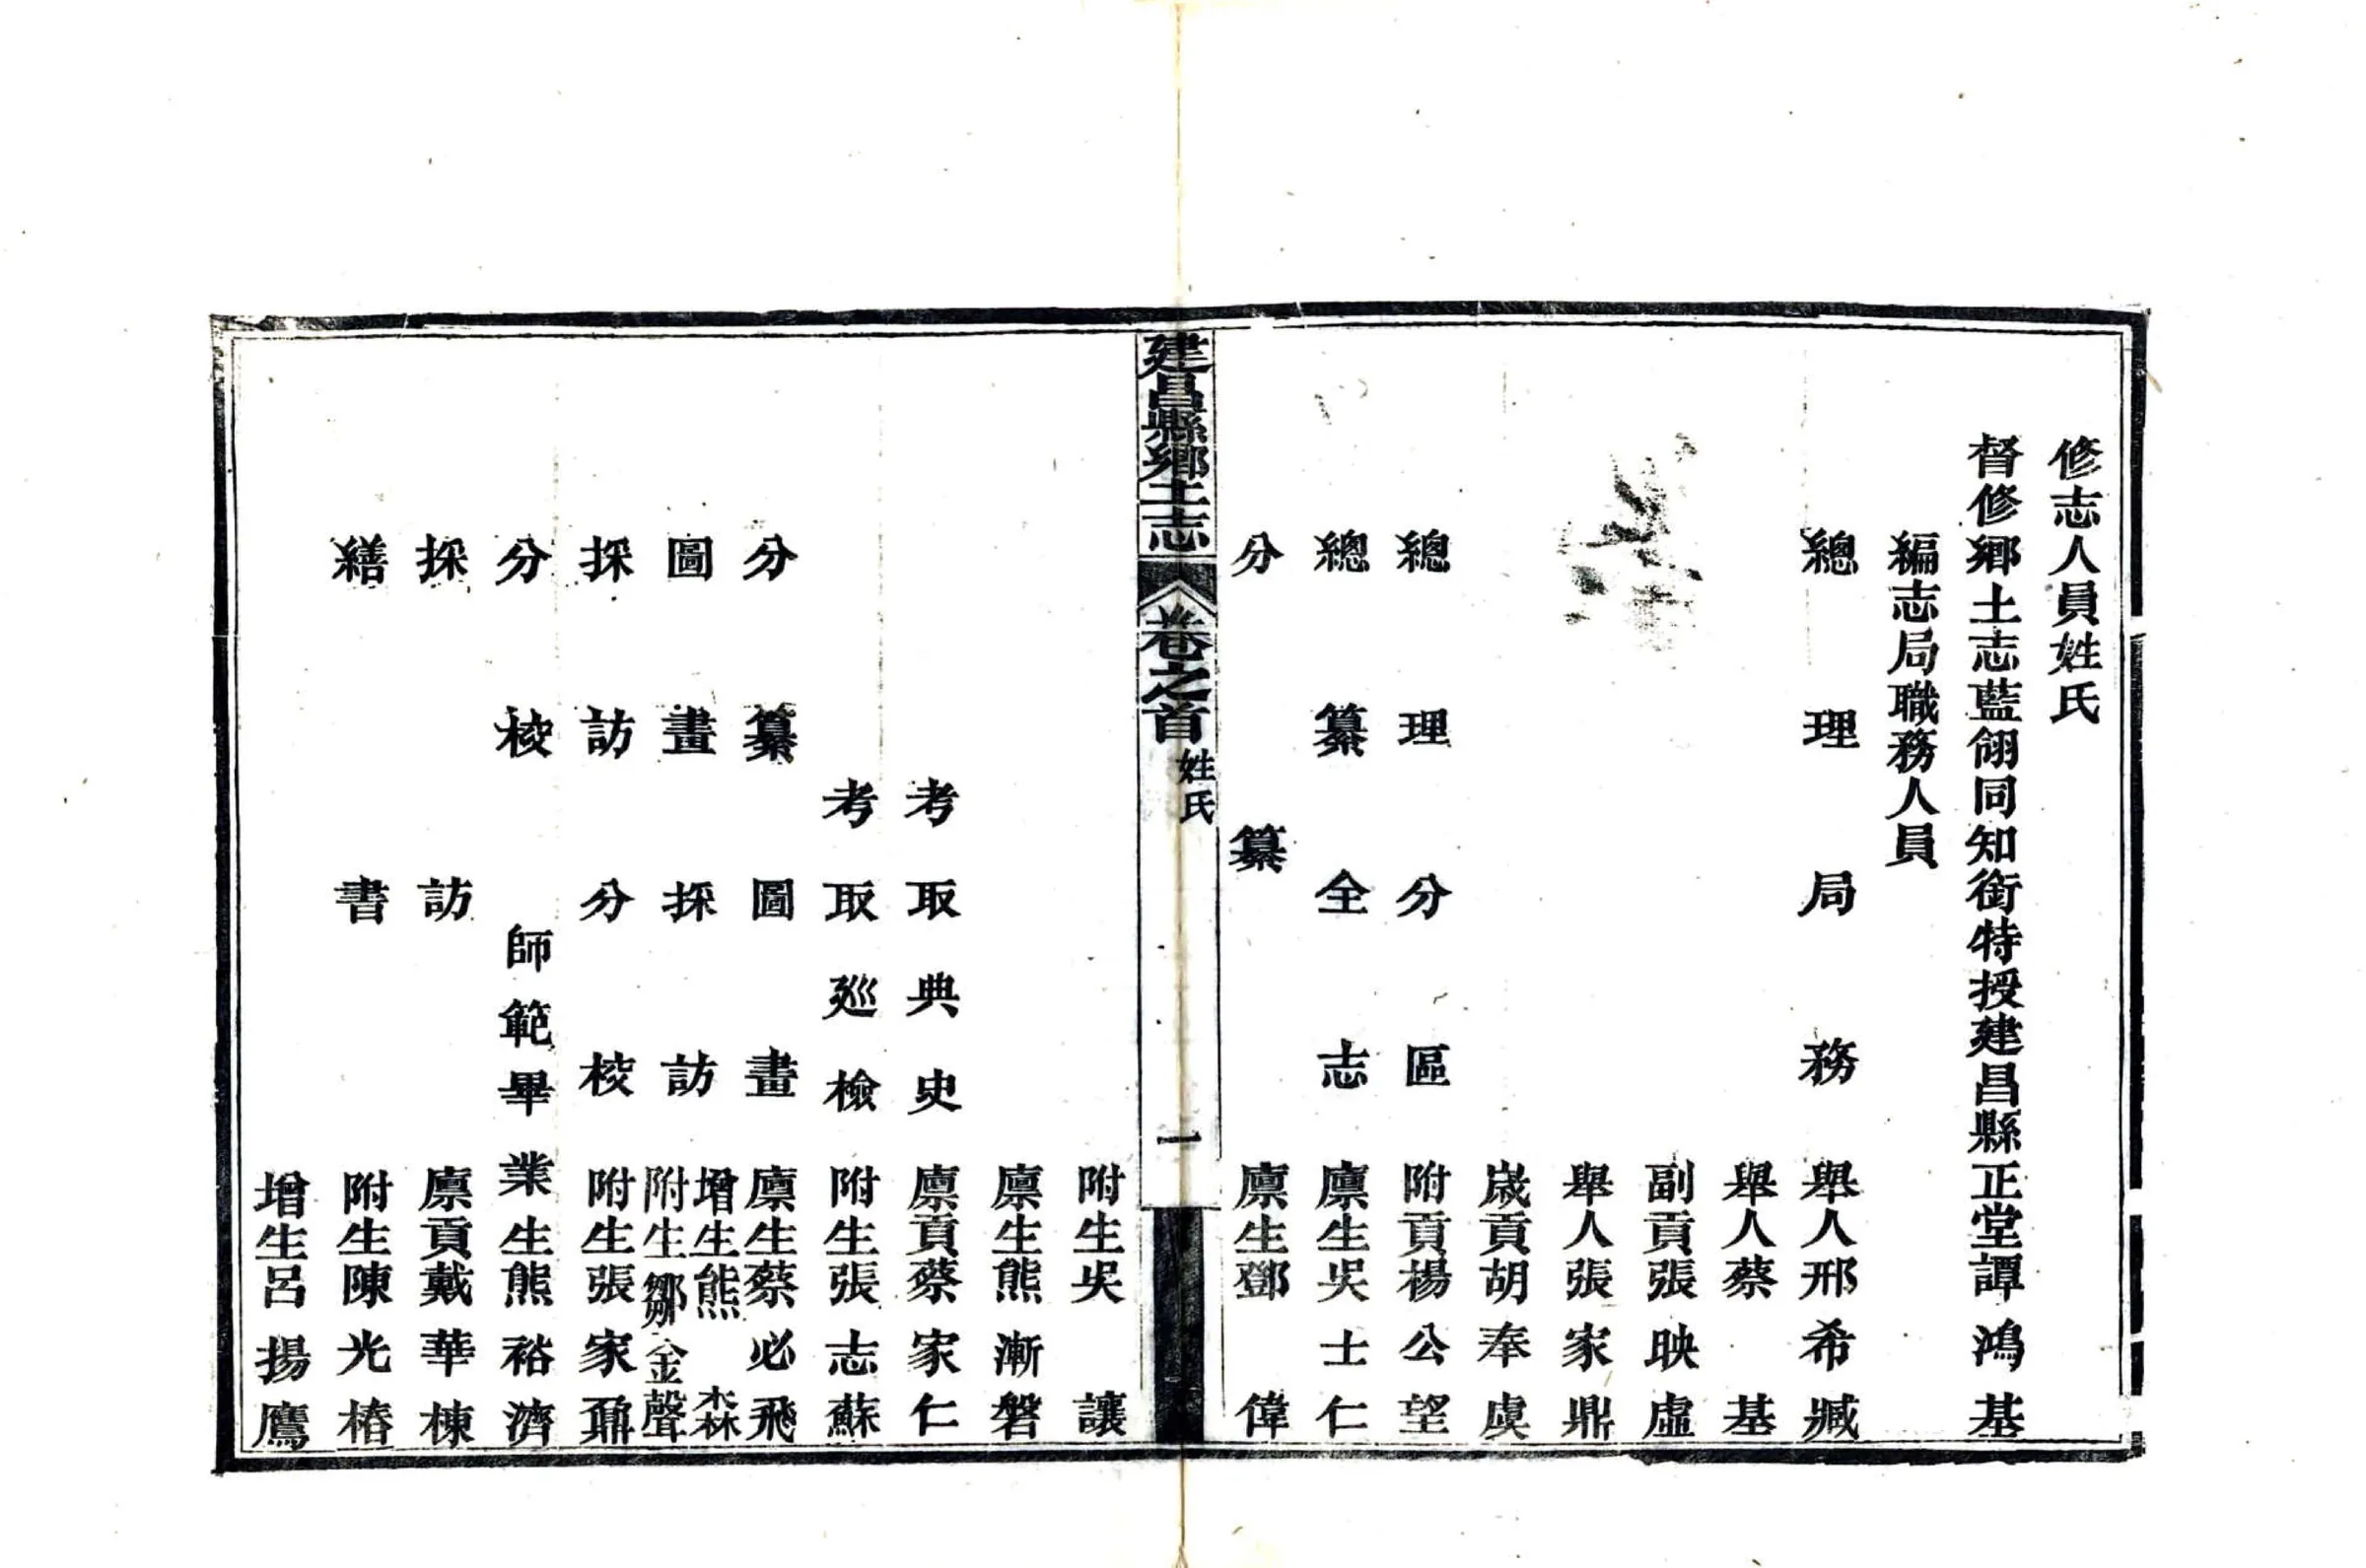 修志人員姓氏
督修鄉土志藍翎同知銜特授建昌縣正堂譚鴻基
編志局職務人員
總理局務 舉人邢希臧
舉人蔡基
副貢張映虛
舉人張家鼎
歲貢胡奉虞
總理分區 附貢楊公望
總纂全志 廪生吳士仁
分纂 廪生鄧偉
建昌縣鄉土志 卷之首 姓氏 一
附生吳讓
廪生熊漸磐
考取典史 廪貢蔡家仁
考取巡檢 附生張志蘇
分纂圖畫 廪生蔡必飛
圖畫採訪 增生熊森
附生鄒金聲
採訪分校 附生張家鼐
分校 師範畢業生熊裕濟
採訪 廪貢戴華棟
繕書 附生陳光椿
增生呂揚鷹